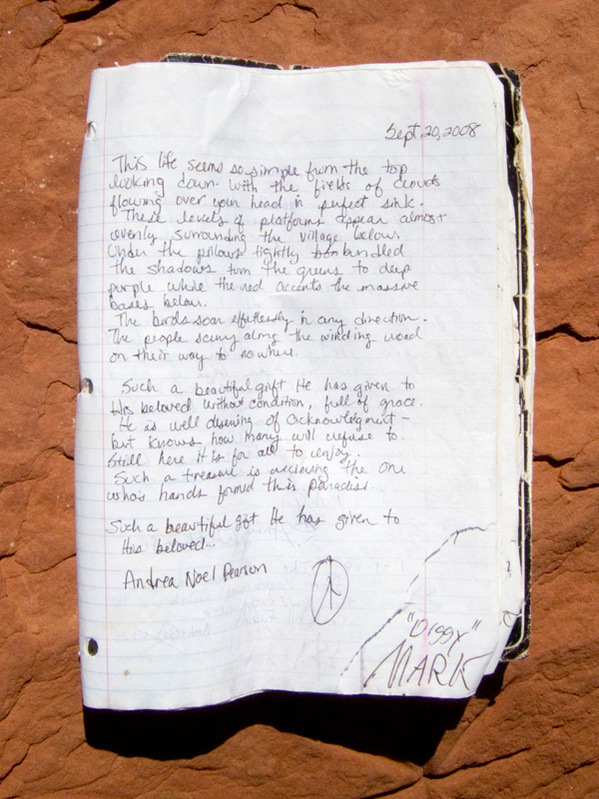 Sept 20, 2008
This life seems so simple from the top
looking down. With the fields of clouds
flowing over your head in perfect sink.
These levels of platforms appear almost
evenly surrounding the village below.
Under the pillows tightly bundled
the shadows turn the greens to deep
purple while the red accents the massive
bases below.
The birds soar effortlessly in any direction.
The people scurry along the winding road
on their way to nowhere.
Such a beautiful gift He has given to
His beloved without condition, full of grace.
He is well deserving of acknowledgment -
but knows how many will refuse to.
Still here it is for all to enjoy.
Such a treasure is the One
who's hands formed this paradise.
Such a beautiful gift He has given to
His beloved...
Andrea Noel Pearson
"Diggy"
MARK